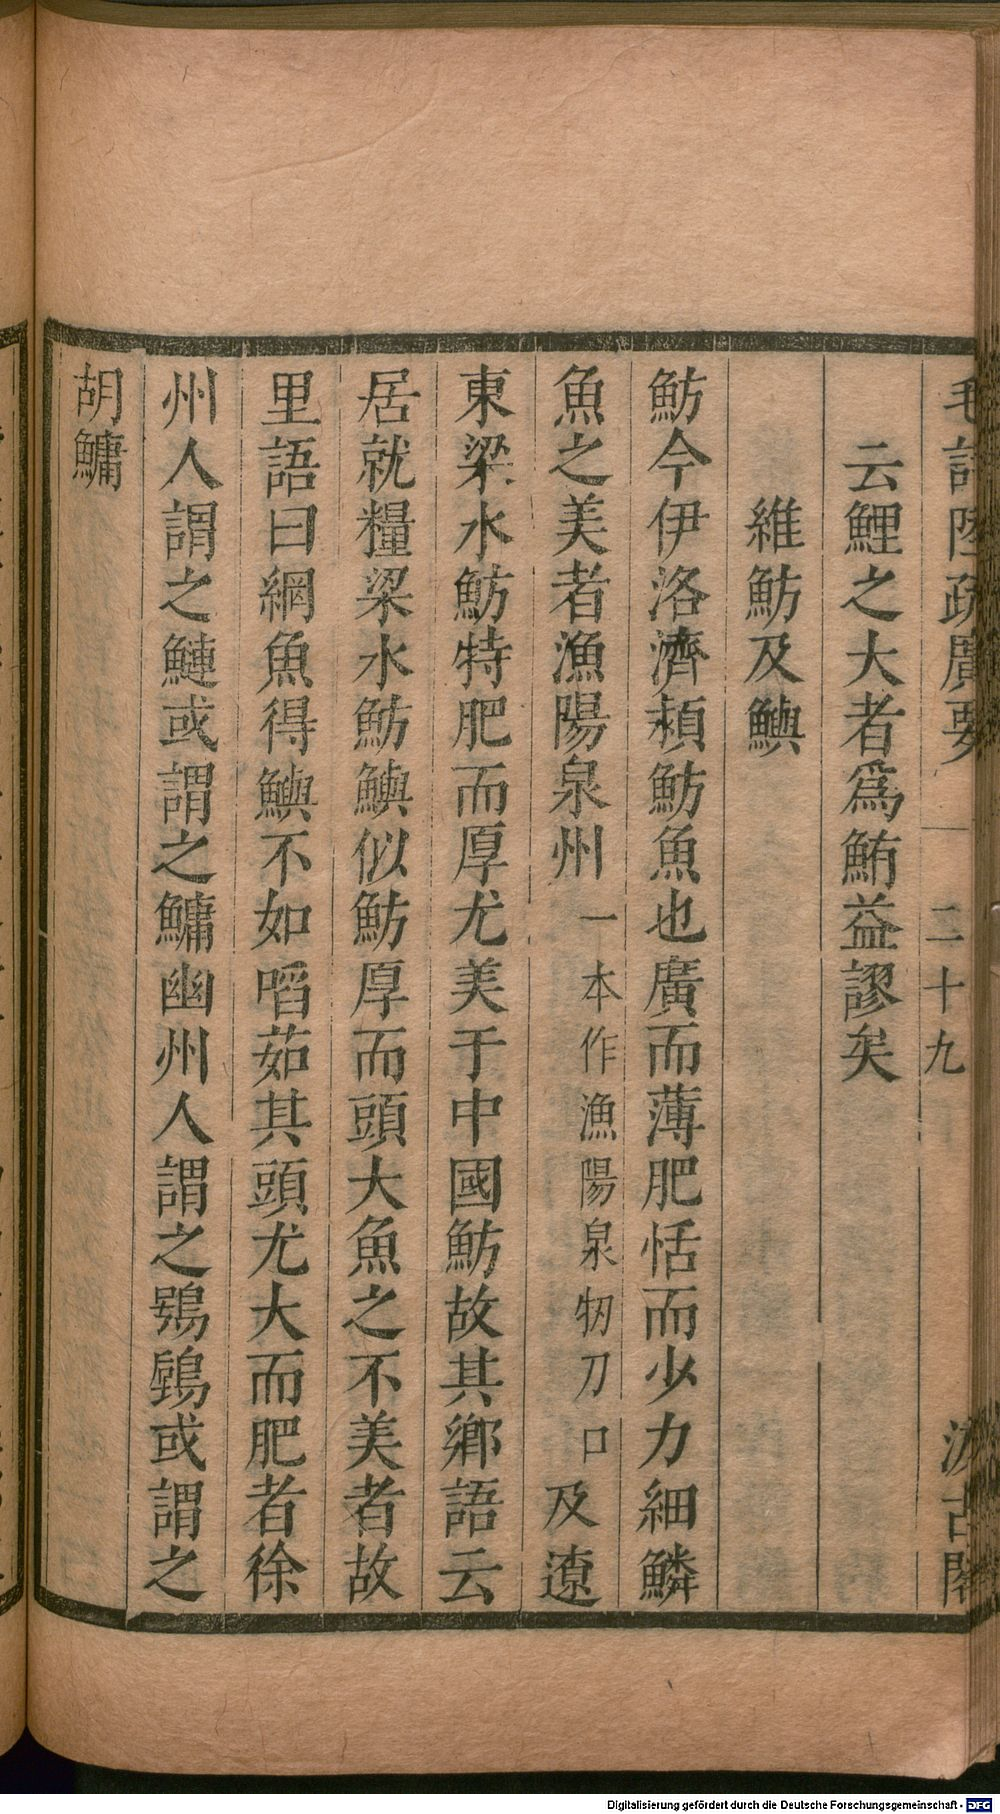 毛詩陸疏廣要 二十九 汲古閣
云鯉之大者爲鮪益謬矣
維魴及鱮
魴今伊洛濟潁魴魚也廣而薄肥恬而少力細鱗
魚之美者漁陽泉州一本作漁陽泉牣刀口及遼
東梁水魴特肥而厚尤美于中國魴故其鄉語云
居就糧梁水魴鱮似魴厚而頭大魚之不美者故
里語曰網魚得鱮不如啗茹其頭尤大而肥者徐
州人謂之鰱或謂之鱅幽州人謂之鴞鴟或謂之
胡鱅
Digitalisierung gefördert durch die Deutsche Forschungsgemeinschaft - DFG